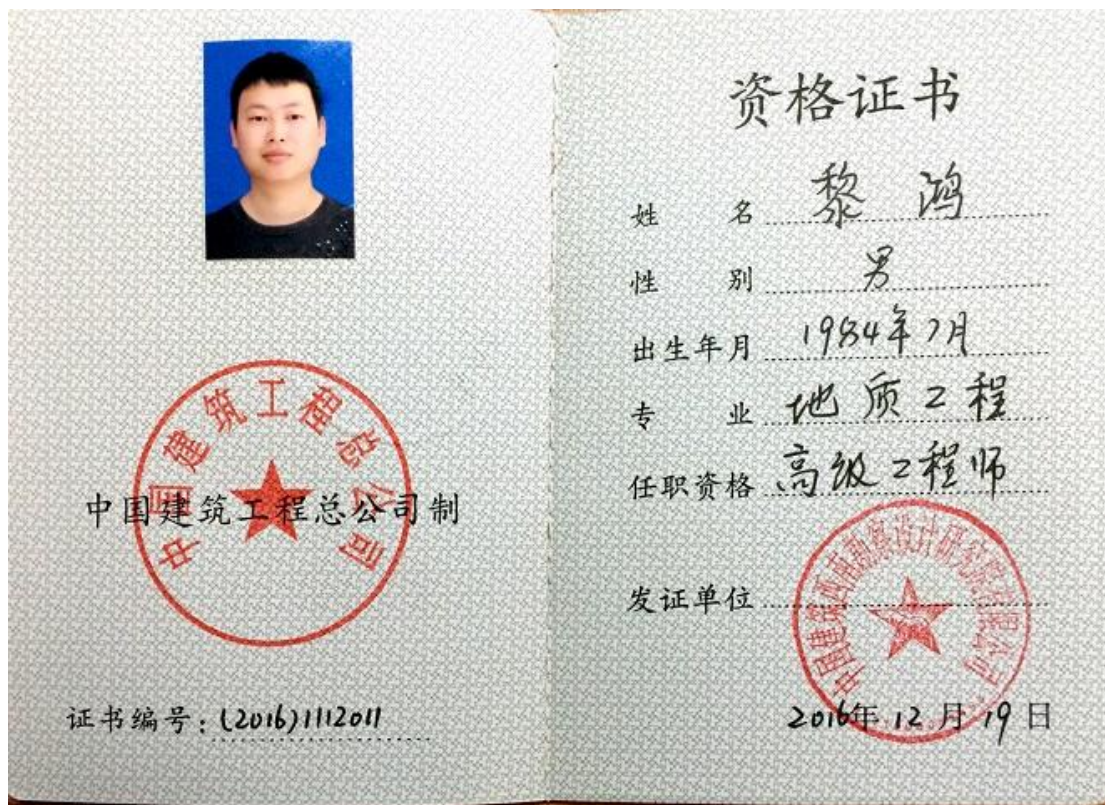 中国建筑工程总公司
中国建筑工程总公司制
证书编号：(2016)1112011
资格证书
姓名 黎鸿
性别 男
出生年月 1984年7月
专业 地质工程
任职资格 高级工程师
发证单位
中国建筑西南勘察设计研究院有限公司
2016年12月19日